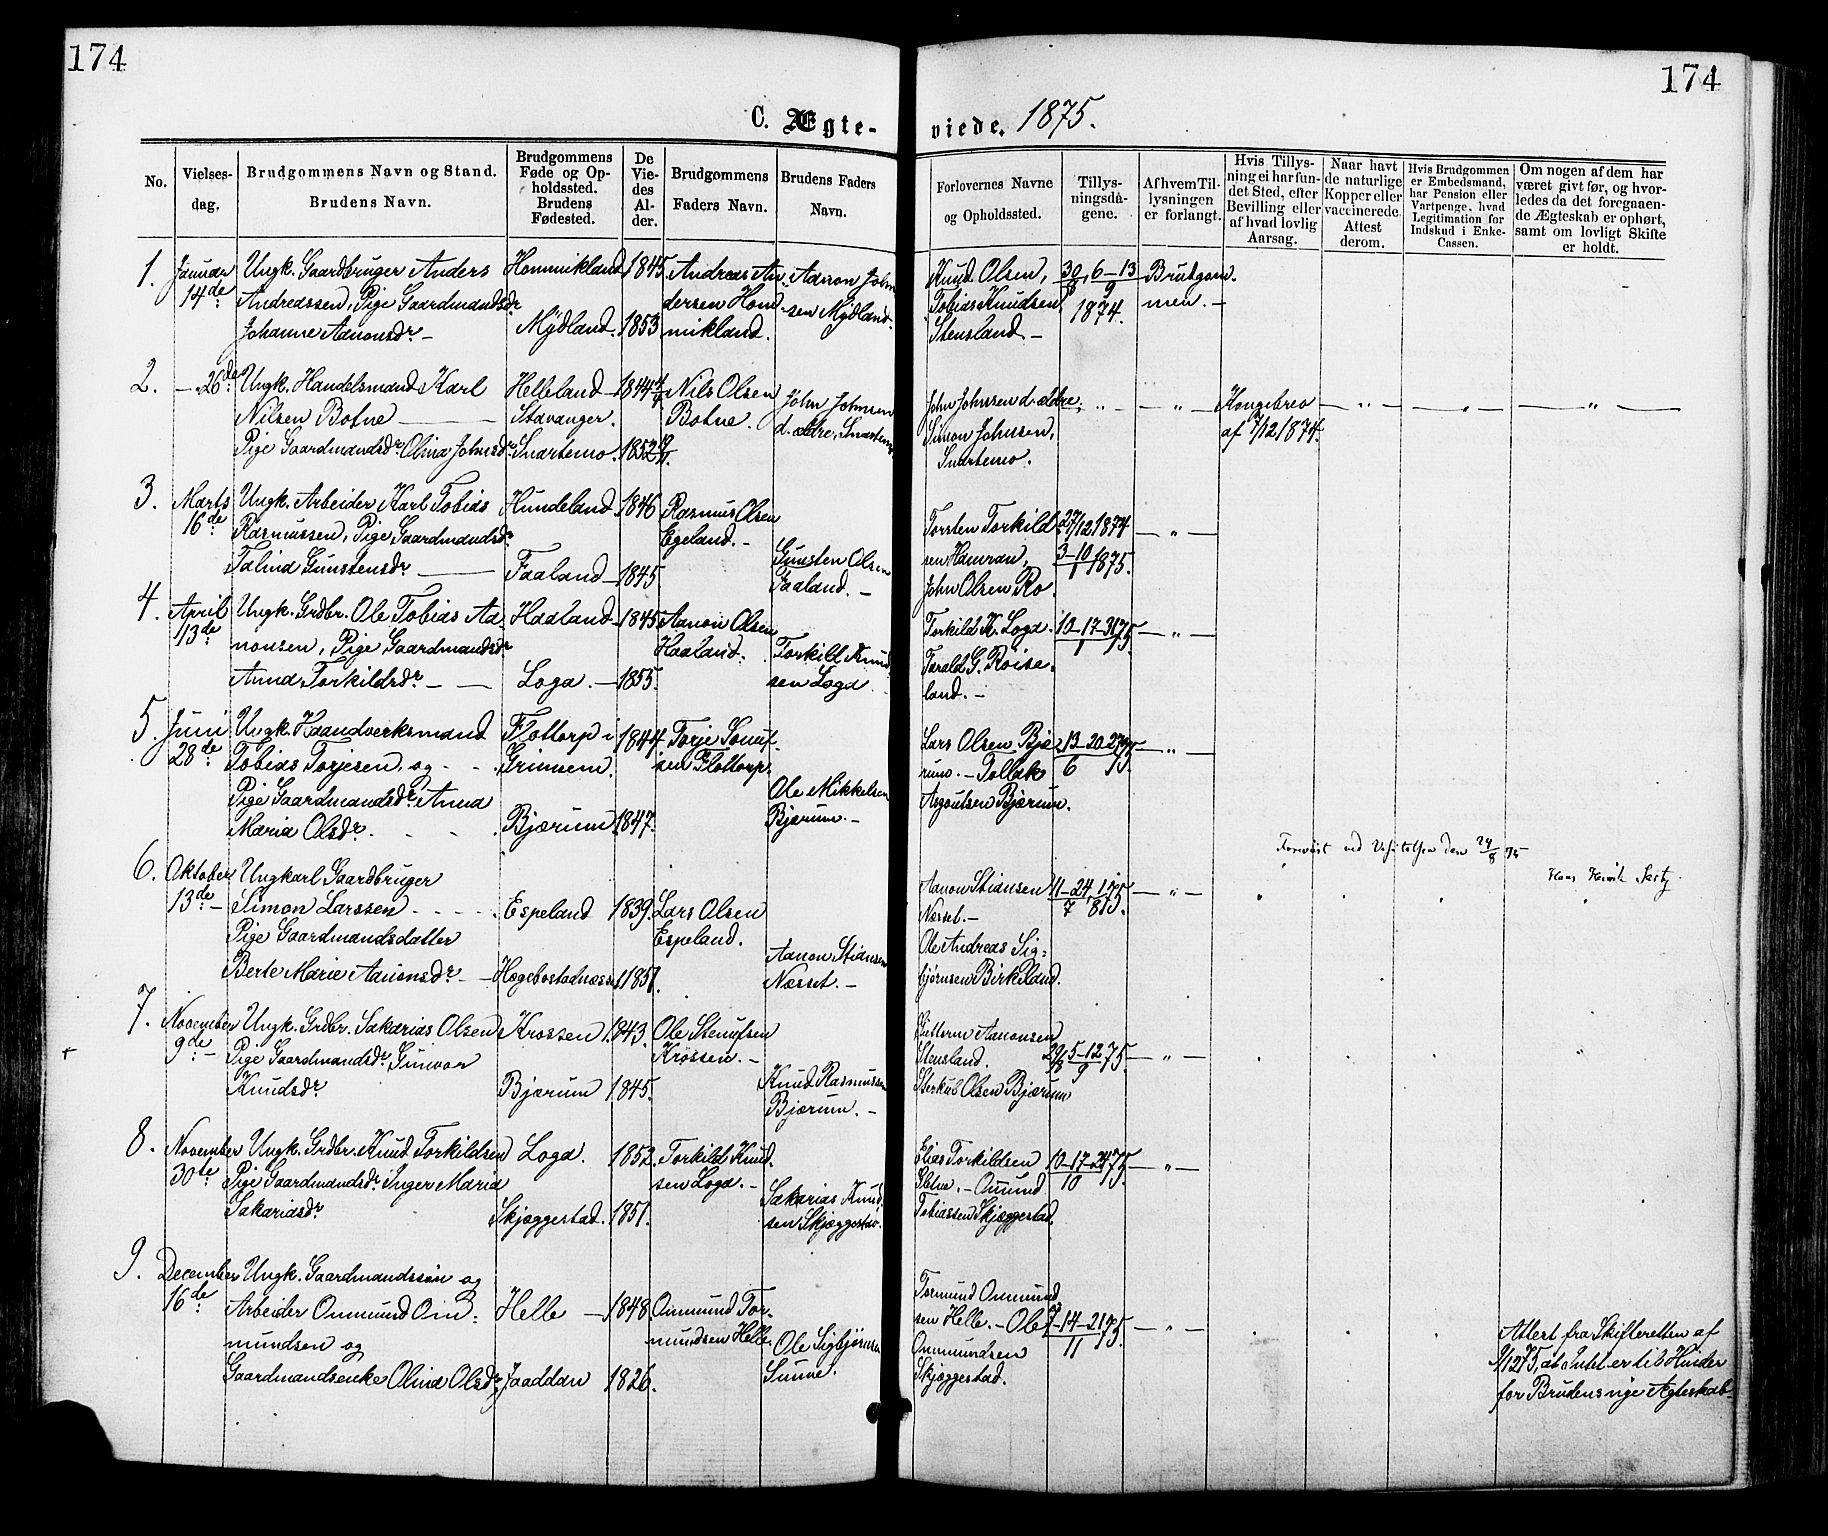 174
174
C. Ægte-
viede. 1875.
No.
Vielses-
dag.
Brudgommens Navn og Stand.
Brudens Navn.
Brudgommens
Føde og Op-
holdssted.
Brudens
Fødested.
De
Vie-
des
Al-
der.
Brudgommens
Faders Navn.
Brudens Faders
Navn.
Forlovernes Navne
og Opholdssted.
Tillys-
ningsda-
gene.
Af hvem Til-
lysningen
er forlangt.
Hvis Tillys-
ning ei har fun-
det Sted, efter
Bevilling eller
af hvad lovlig
Aarsag.
Naar havt
de naturlige
Kopper eller
vaccinerede.
Attest
derom.
Hvis Brudgommen
er Embedsmand,
har Pension eller
Vartpenge, hvad
Legitimation for
Indskud i Enke-
Cassen.
Om nogen af dem har
været givt før, og hvor-
ledes da det foregaaen-
de Ægteskab er ophørt,
samt om lovligt Skifte
er holdt.
1.
Januar
14de
Ungk. Gaardbruger Anders
Andreassen, Pige Gaardmandsdr
Johanne Aanonsdr –
Hommikland
Mydland.
1845
1853
Andreas An-
dersen Hom-
mikland.
Aanon John-
sen Mydland.
Knud Olsen,
Tobias Knudsen
Stensland. –
30/8, 6–13/9
1874.
Brudgom-
men. –
2.
– 26de
Ungk. Handelsmand Karl
Nilsen Botne
Pige Gaardmandsdr Olina Johnsdr
Helleland
Stavanger.
Snartemo.
1844
1852
Nils Olsen
Botne.
John Johnsen
d. ældre, Snartemo
John Johnsen d. ældre,
Simon Johnsen,
Snartemo.
– „ –
Kongebrev
af 7/12 1874.
3.
Marts
16de
Ungk. Arbeider Karl Tobias
Rasmussen, Pige Gaardmandsdr
Talina Gunstensdr
Hundeland
Faaland
1846
1845
Rasmus Olsen
Egeland. –
Gunsten Olsen
Faaland. –
Torsten Torkild-
sen Hamran,
John Olsen Ro.
27/12 1874
3–10/1 1875.
– „ –
4.
April
13de
Ungk. Grdbr. Ole Tobias Aa-
nonsen, Pige Gaardmandsdr
Anna Torkildsdr –
Haaland
Loga. –
1845
1855.
Aanon Olsen
Haaland.
Torkild Knud-
sen Loga
Torkild K. Loga.
Tarald G. Røise-
land. –
10–17–31/1 75.
– „ –
5.
Juni
28de
Ungk. Haandverksmand
Tobias Torjesen, og
Pige Gaardmandsdr Anna
Maria Olsdr.
Flottorp i
Grinnem.
Bjærum
1844
1847.
Torje
sen Flottorp.
Ole Mikkelsen
Bjærum. –
Lars Olsen Bjæ-
rum. – Tollak
Asgoutsen Bjærum.
13–20–27/6 75.
– „ –
den 24/8 75
6.
Oktober
13de –
Ungkarl Gaardbruger
Simon Larssen
Pige Gaardmandsdatter
Berte Marie Aanonsdr –
Espeland
Hægebostadnæsset
1839.
1851.
Lars Olsen
Espeland.
Aanon Stiansen
Næsset. –
Aanon Stiansen
Næsset. –
Ole Andreas Sig-
bjørnsen Birkeland.
– „ –
7.
November
9de –
Ungk. Grdbr. Sakarias Olsen
Pige Gaardmandsdr Gunvor
Knudsdr
Krossen
Bjærum
1843.
1845.
Ole Stenufsen
Krossen. –
Knud Rasmussen
Bjærum. –
Guttorm Aanonsen
Stensland.
Sterkas Olsen Bjærum
29/8 5–12/9 75
– „ –
8.
November
30te
Ungk. Grdbr. Knud Torkildsen
Pige Gaardmandsdr Inger Maria
Sakariasdr
Loga.
Skjæggestad.
1852.
1851.
Torkild Knud-
sen Loga. –
Sakarias Knud-
sen Skjæggestad.
Elias Torkildsen
Tobiassen Skjæggestad.
10–17–24/10 75.
– „ –
9.
December
16de
Ungk. Gaardmandssøn og
Arbeider Ommund Om-
mundsen og
Gaardmandsenke Olina Olsdr
Helle
Jaaddan
1848.
1826.
Ommund Tor-
mundsen Helle.
Ole Sigbjørnsen
Sunne.
Tormund Ommund-
sen Helle. – Ole
Ommundsen
Skjæggestad.
7–14–21/11 75.
– „ –
Attest fra Skifteretten af
9/12 75, at Intet er til Hinder
for Brudens nye Ægteskab.